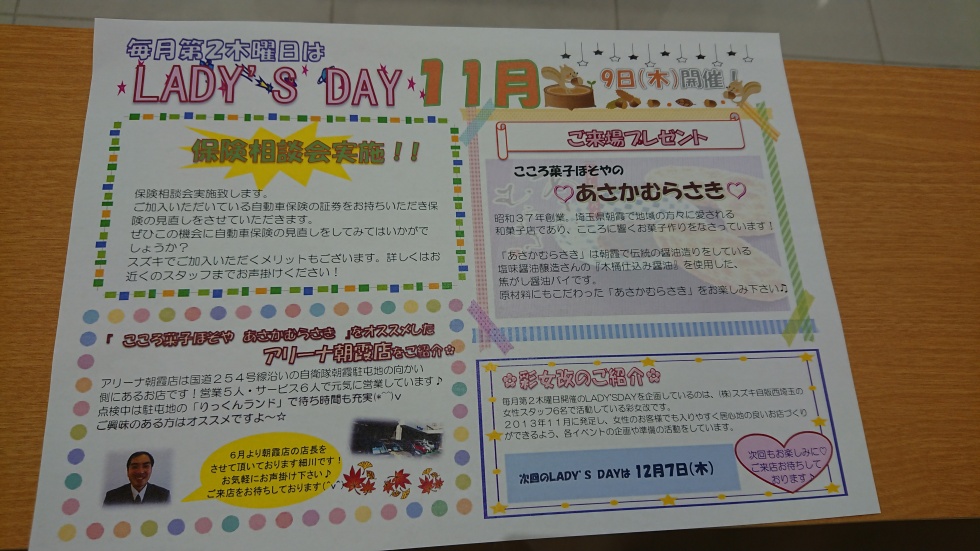 毎月第2木曜日は
LADY'S DAY 11月 9日(木)開催!
保険相談会実施!!
保険相談会実施致します。
ご加入いただいている自動車保険の証券をお持ちいただき保
険の見直しをさせていただきます。
ぜひこの機会に自動車保険の見直しをしてみてはいかがで
しょうか?
スズキでご加入いただくメリットもございます。詳しくはお
近くのスタッフまでお声掛けください!
ご来場プレゼント
こころ菓子ほそやの
♡あさかむらさき♡
昭和37年創業、埼玉県朝霞で地域の方々に愛される
和菓子店であり、こころに響くお菓子作りをなさっています!
「あさかむらさき」は朝霞で伝統の醤油造りをしている
塩味醤油醸造さんの『木桶仕込み醤油』を使用した、
焦がし醤油パイです。
原材料にもこだわった「あさかむらさき」をお楽しみ下さい♪
『 こころ菓子ほそや あさかむらさき 』をオススメした
アリーナ朝霞店をご紹介☆
アリーナ朝霞店は国道254号線沿いの自衛隊朝霞駐屯地の向かい
側にあるお店です!営業5人・サービス6人で元気に営業しています♪
点検中は駐屯地の「りっくんランド」で待ち時間も充実(*^^)v
ご興味のある方はオススメですよ~☆
6月より朝霞店の店長を
させて頂いております細川です!
お気軽にお声掛け下さい♪
ご来店をお待ちしております(^v^)
☆彩女改のご紹介☆
毎月第2木曜日開催のLADY'SDAYを企画しているのは、(株)スズキ自販西埼玉の
女性スタッフ6名で活動している彩女改です。
2013年11月に発足し、女性のお客様でも入りやすく居心地の良いお店づくり
ができるよう、各イベントの企画や準備の活動をしています。
次回のLADY'S DAYは 12月7日(木)
次回もお楽しみに♡
ご来店お待ちして
おります♪